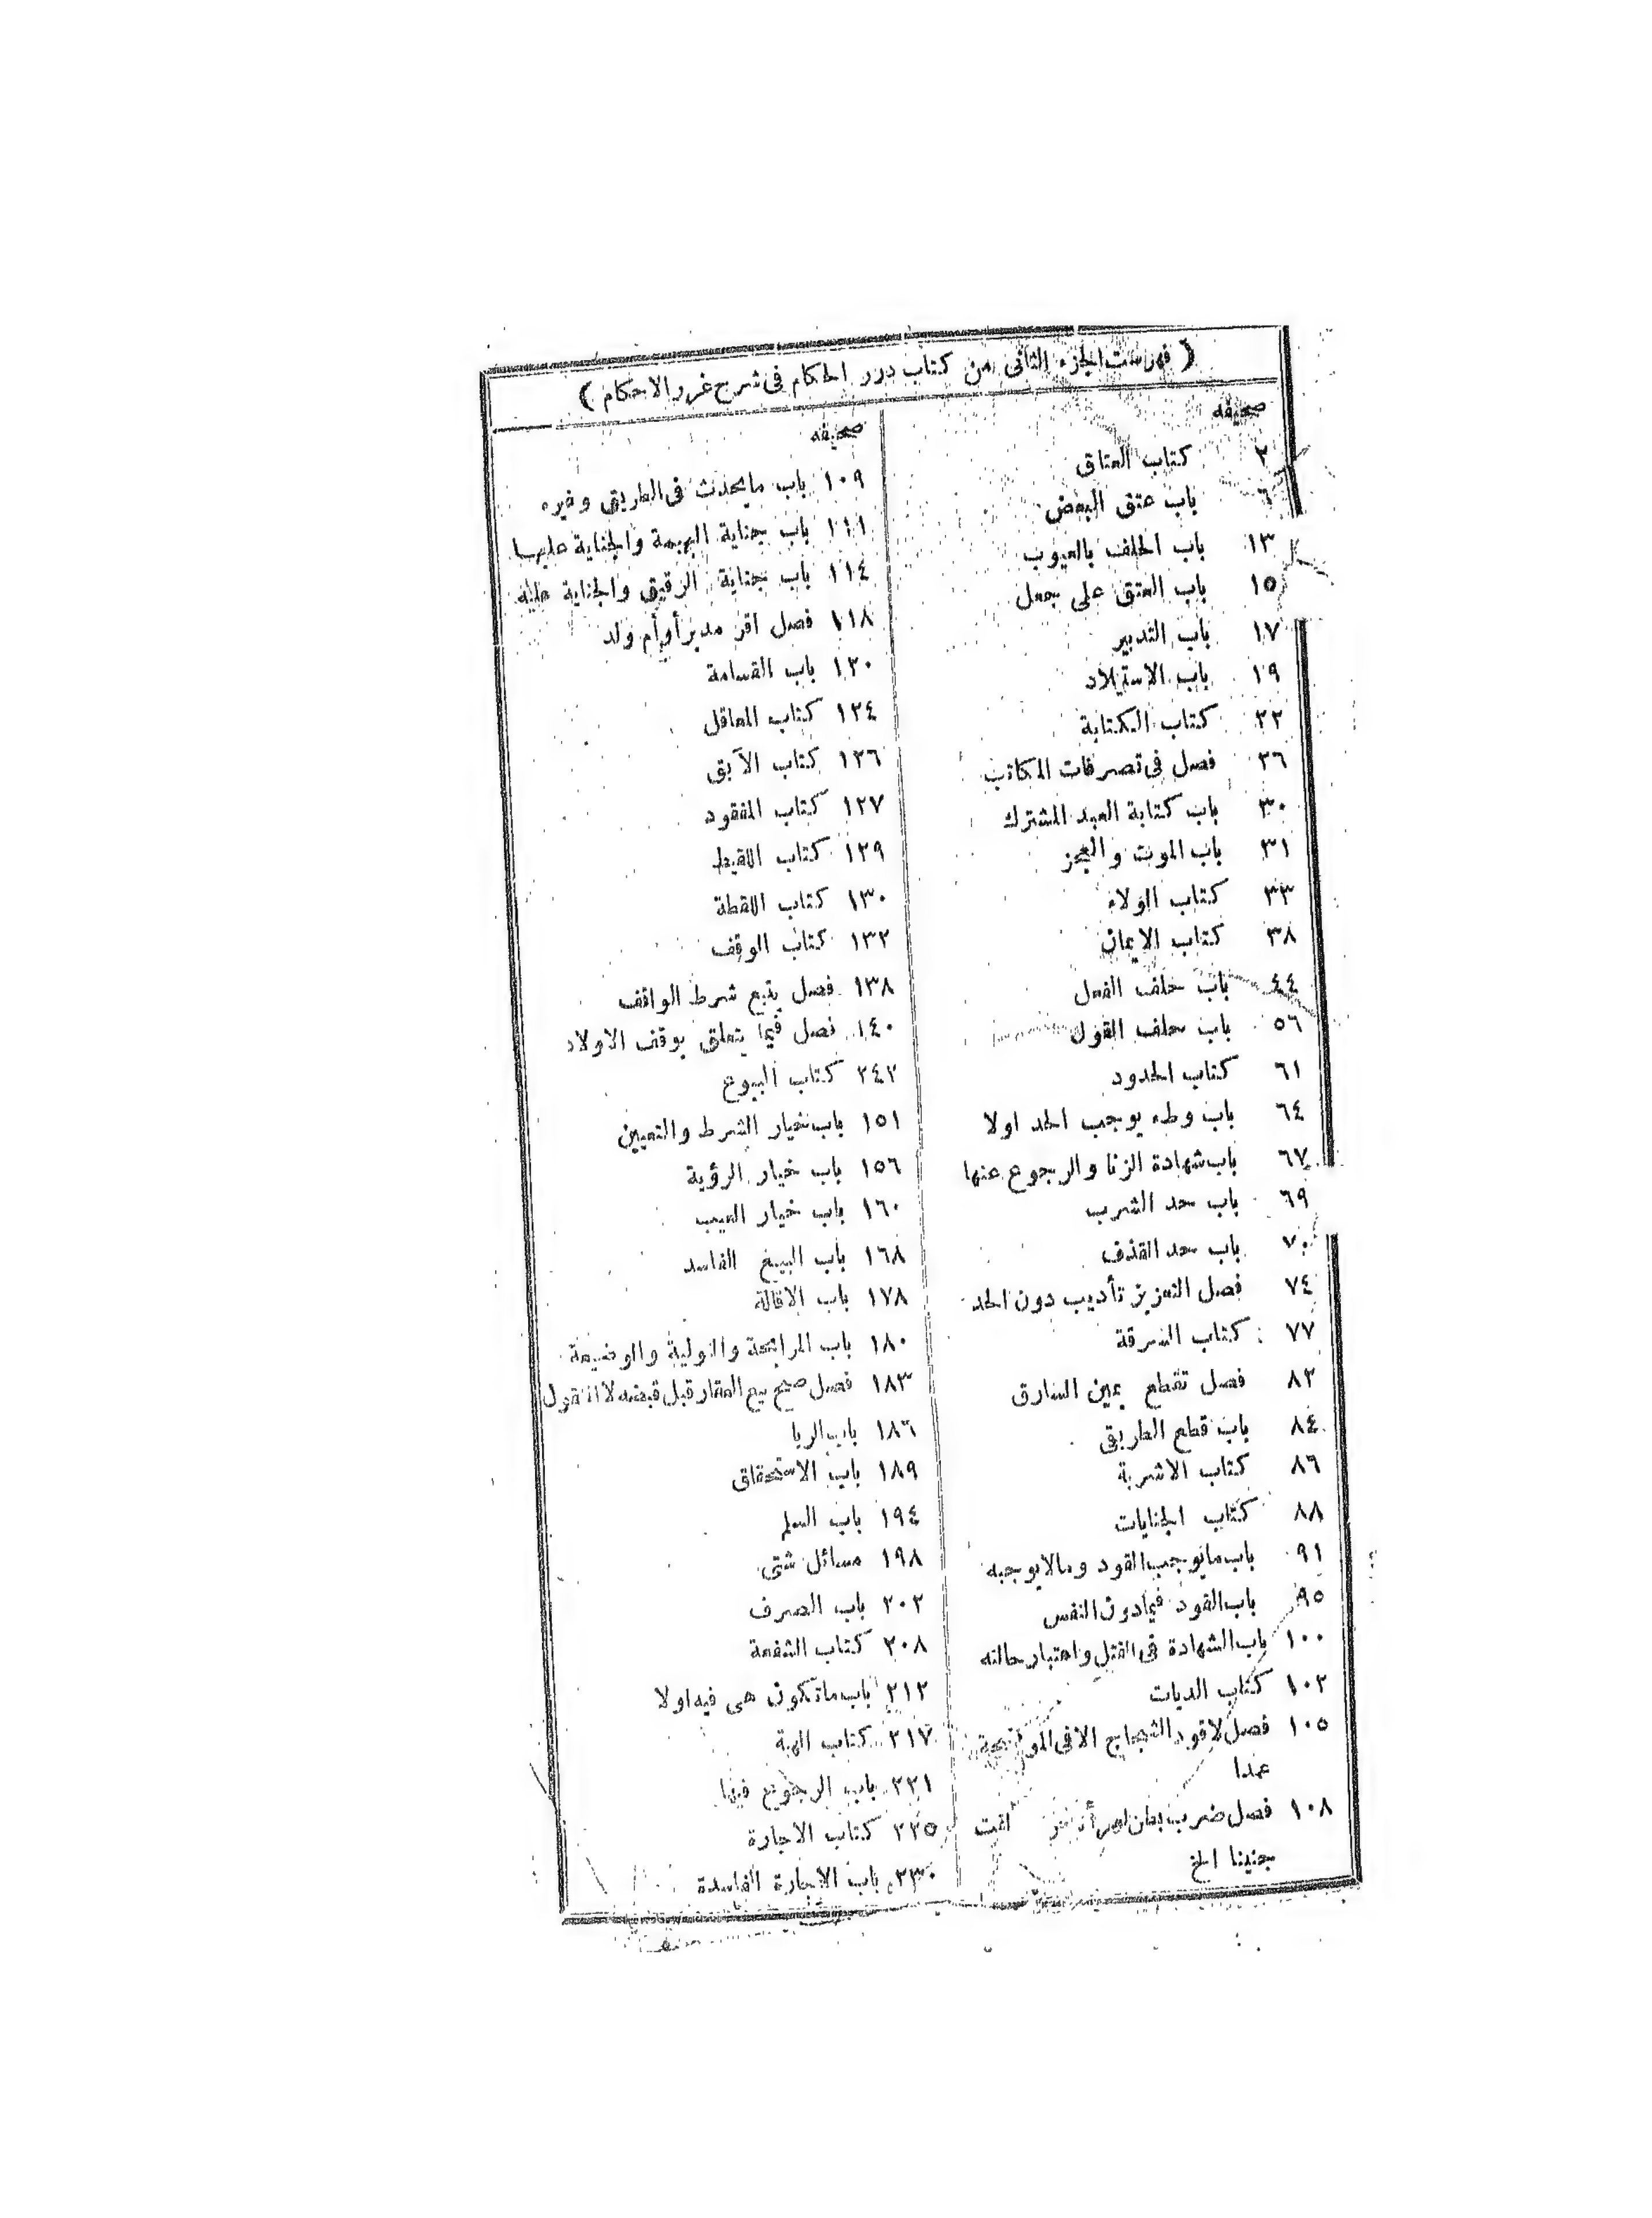 ( فهرست الجزء الثانى من كتاب درر الحكام فى شرح غرر الاحكام )
صحيفه
٢ كتاب العتاق
٦ باب عتق البعض
١٣ باب الحلف بالعيوب
١٥ باب العتق على جعل
١٧ باب التدبير
١٩ باب الاستيلاد
٢٢ كتاب الكتابة
٢٦ فصل فى تصرفات المكاتب
٣٠ باب كتابة العبد المشترك
٣١ باب الموت والعجز
٣٣ كتاب الولاء
٣٨ كتاب الايمان
٤٤ باب حلف الفعل
٥٦ باب حلف القول
٦١ كتاب الحدود
٦٤ باب وطء يوجب الحد اولا
٦٧ باب شهادة الزنا والرجوع عنها
٦٩ باب حد الشرب
٧٠ باب حد القذف
٧٤ فصل التعزيز تأديب دون الحد
٧٧ كتاب السرقة
٨٢ فصل تقطع يمين السارق
٨٤ باب قطع الطريق
٨٦ كتاب الاشربة
٨٨ كتاب الجنايات
٩١ باب مايوجب القود ومالايوجبه
٩٥ باب القود فيمادون النفس
١٠٠ باب الشهادة فى القتل واعتبار حالته
١٠٢ كتاب الديات
١٠٥ فصل لاقود الشجاج الا فى الموضحة
عمدا
١٠٨ فصل ضرب بطن امرأة القت
جنينا الخ
صحيفه
١٠٩ باب مايحدث فى الطريق وغيره
١١١ باب جناية البهيمة والجناية عليها
١١٤ باب جناية الرقيق والجناية عليه
١١٨ فصل اقر مدبر أو أم ولد
١٢٠ باب القسامة
١٢٤ كتاب المعاقل
١٢٦ كتاب الآبق
١٢٧ كتاب المفقود
١٢٩ كتاب اللقيط
١٣٠ كتاب اللقطة
١٣٢ كتاب الوقف
١٣٨ فصل يتبع شرط الواقف
١٤٠ فصل فيما يتعلق بوقف الاولاد
٢٤٢ كتاب البيوع
١٥١ باب خيار الشرط والتعيين
١٥٦ باب خيار الرؤية
١٦٠ باب خيار العيب
١٦٨ باب البيع الفاسد
١٧٨ باب الاقالة
١٨٠ باب المرابحة والتولية والوضيعة
١٨٣ فصل صح بيع العقار قبل قبضه لا المنقول
١٨٦ باب الربا
١٨٩ باب الاستحقاق
١٩٤ باب السلم
١٩٨ مسائل شتى
٢٠٢ باب الصرف
٢٠٨ كتاب الشفعة
٢١٢ باب ماتكون هى فيه اولا
٢١٧ كتاب الهبة
٢٢١ باب الرجوع فيها
٢٢٥ كتاب الاجارة
٢٣٠ باب الاجارة الفاسدة